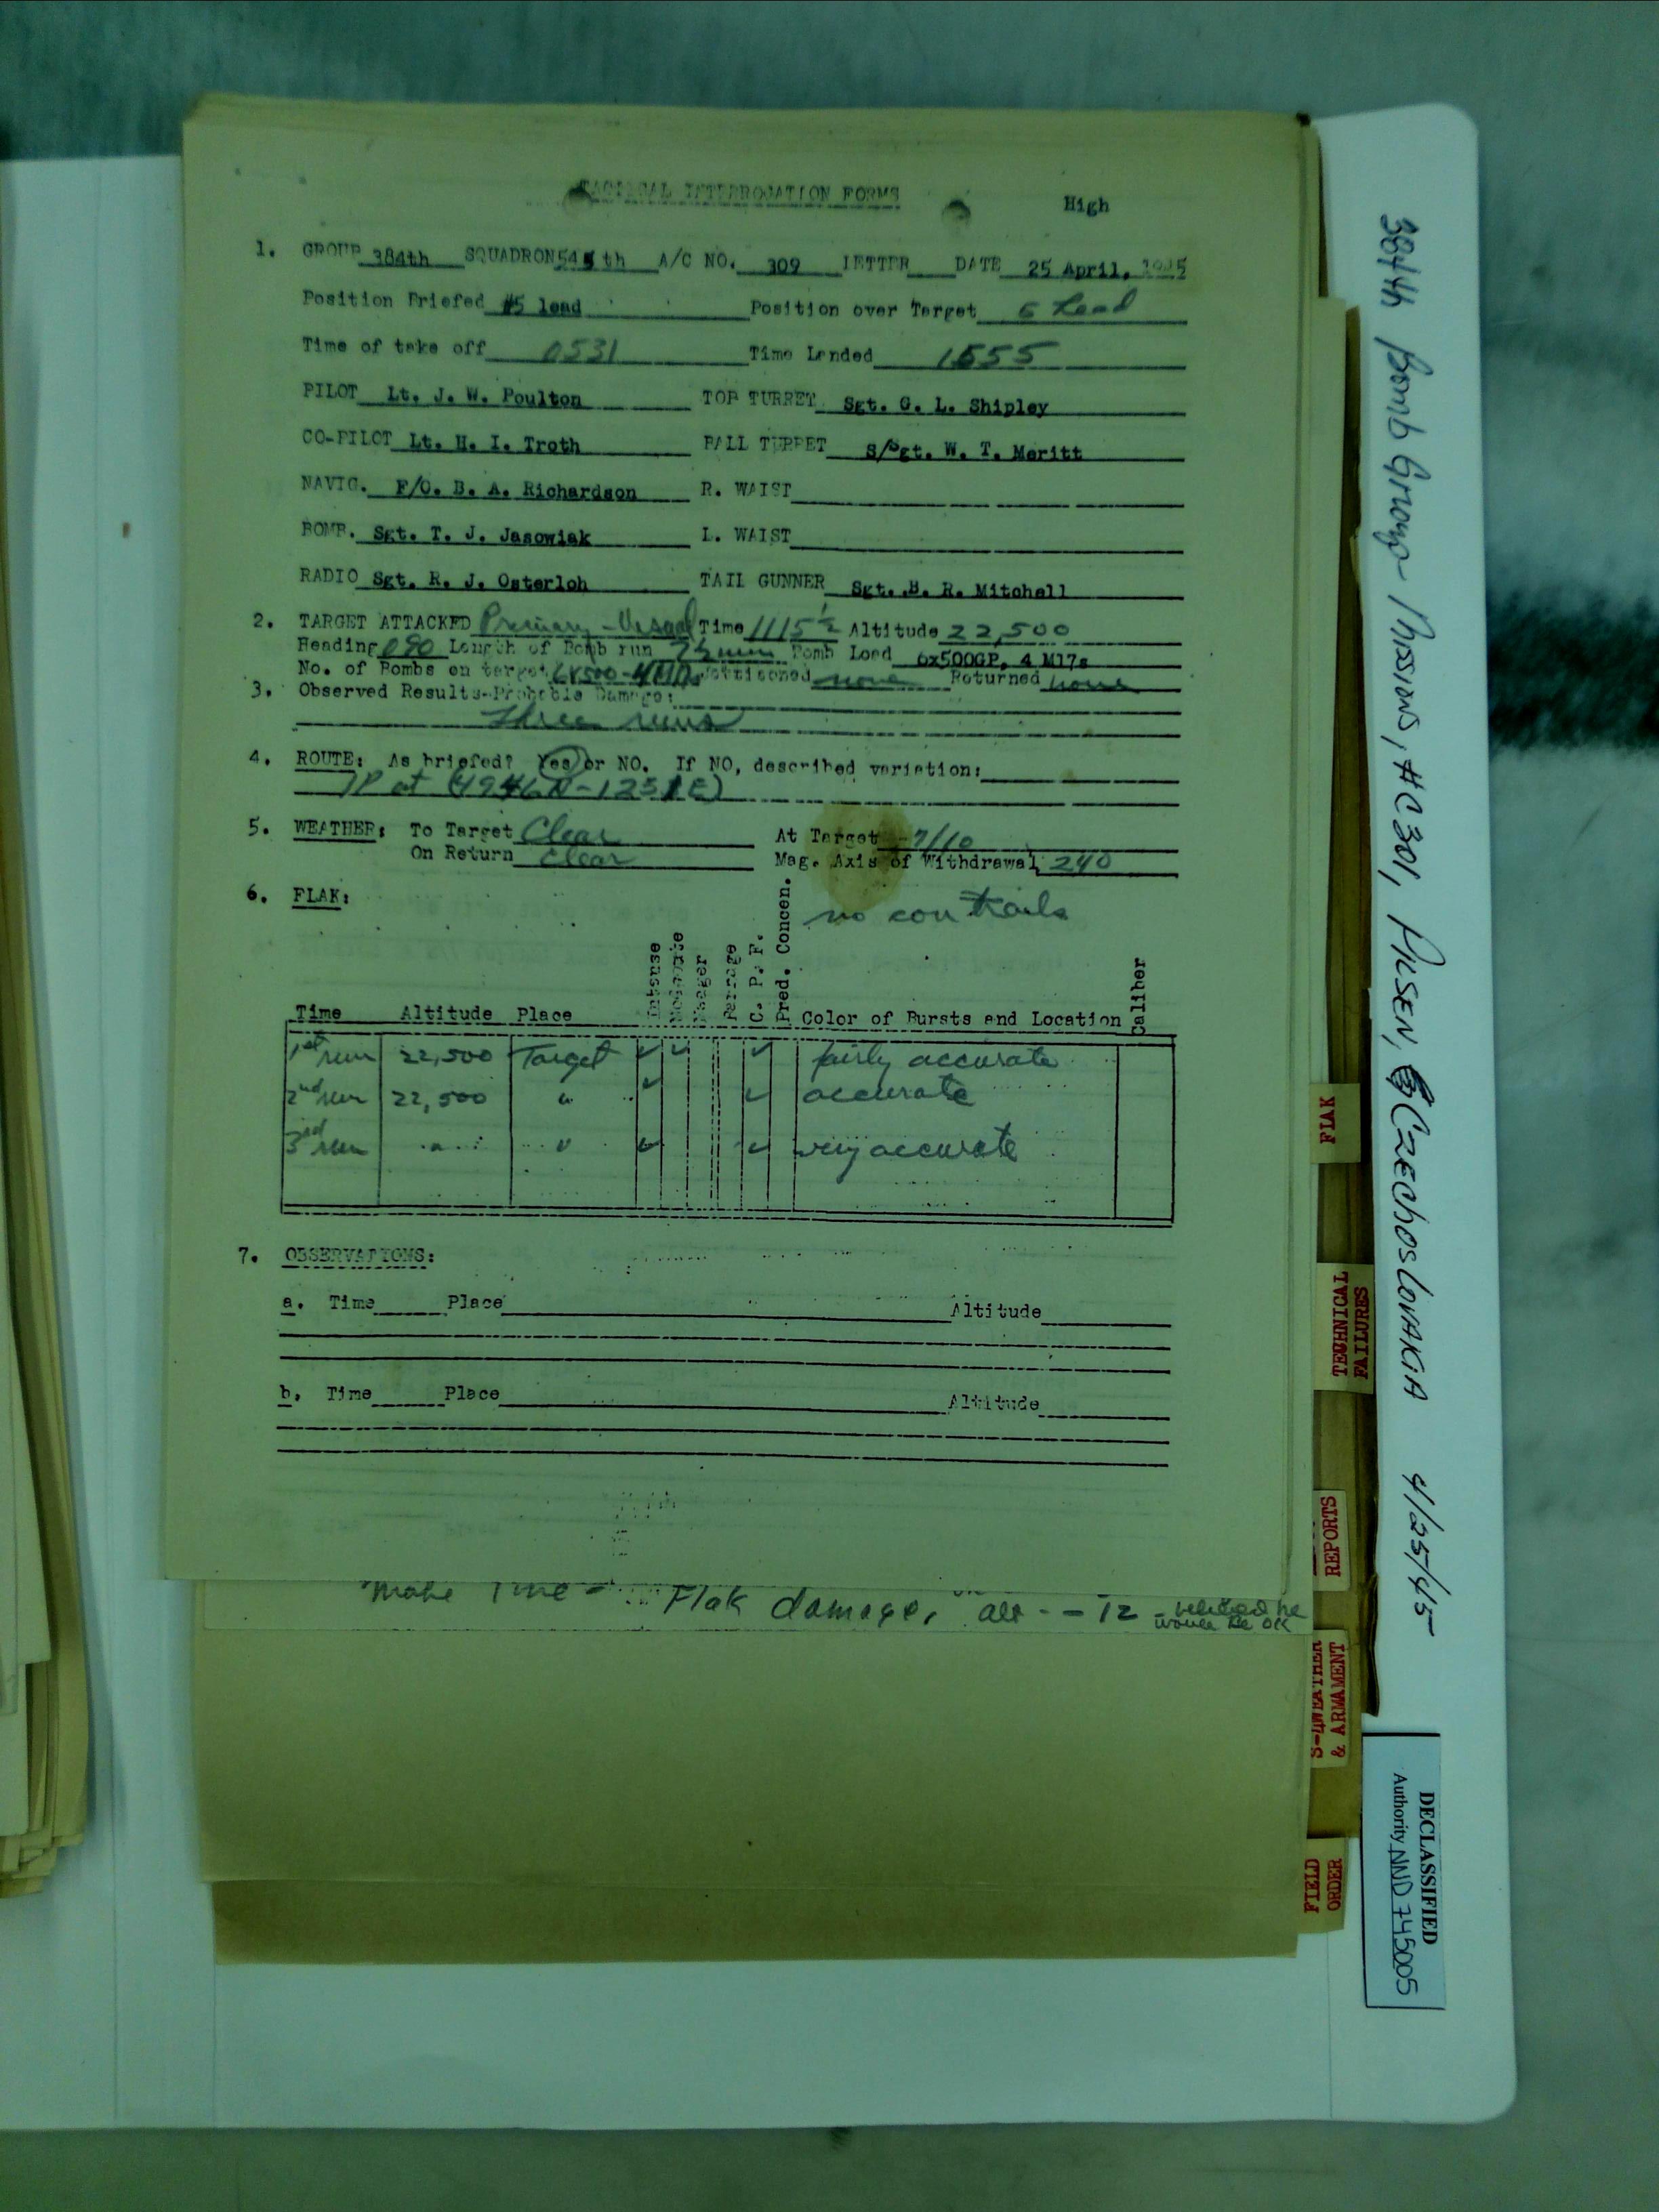 TACTICAL INTERROGATION FORMS
High
1. GROUP 384th SQUADRON 545th A/C NO. 309 LETTER DATE 25 April, 1945
Position Briefed #5 lead Position over Target 5 Lead
Time of take off 0531 Time Landed 1555
PILOT Lt. J. W. Poulton TOP TURRET Sgt. G. L. Shipley
CO-PILOT Lt. H. I. Troth BALL TURRET S/Sgt. W. T. Meritt
NAVIG. F/O. B. A. Richardson R. WAIST
BOMB. Sgt. T. J. Jasowiak L. WAIST
RADIO Sgt. R. J. Osterloh TAIL GUNNER Sgt. B. R. Mitchell
2. TARGET ATTACKED Primary - Visual Time 1115½ Altitude 22,500
Heading 090 Length of Bomb run min Bomb Load 6x500GP, 4 M17s
No. of Bombs on target 6x500 - 4M17s Jettisoned none Returned none
3. Observed Results-Probable Damage:
three runs
4. ROUTE: As briefed? Yes or NO. If NO, described variation:
IP at (4946N-1231E)
5. WEATHER: To Target Clear At Target 7/10
On Return clear Mag. Axis of Withdrawal 240
6. FLAK: no contrails
Time Altitude Place Intense Moderate Meager Barrage C. P. F. Pred. Concen. Color of Bursts and Location Caliber
1st run 22,500 Target ✓ ✓ ✓ fairly accurate
2nd run 22,500 " ✓ ✓ accurate
3rd run " " ✓ ✓ very accurate
7. OBSERVATIONS:
a. Time Place Altitude
b. Time Place Altitude
make time - Flak damage, alt - - 12 - believed he
would be OK
384th Bomb Group Missions, #C301, PILSEN, CZECHOSLOVAKIA 4/25/45
FLAK
TECHNICAL
FAILURES
REPORTS
S-4 WEATHER
& ARMAMENT
FIELD
ORDER
DECLASSIFIED
Authority NND 745005